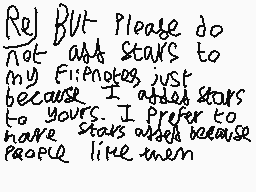 Re] BUt Please do
not add stars to
my Flipnotes just
because I added stars
to yours. I Prefer to
have stars added because
PeoPle like them